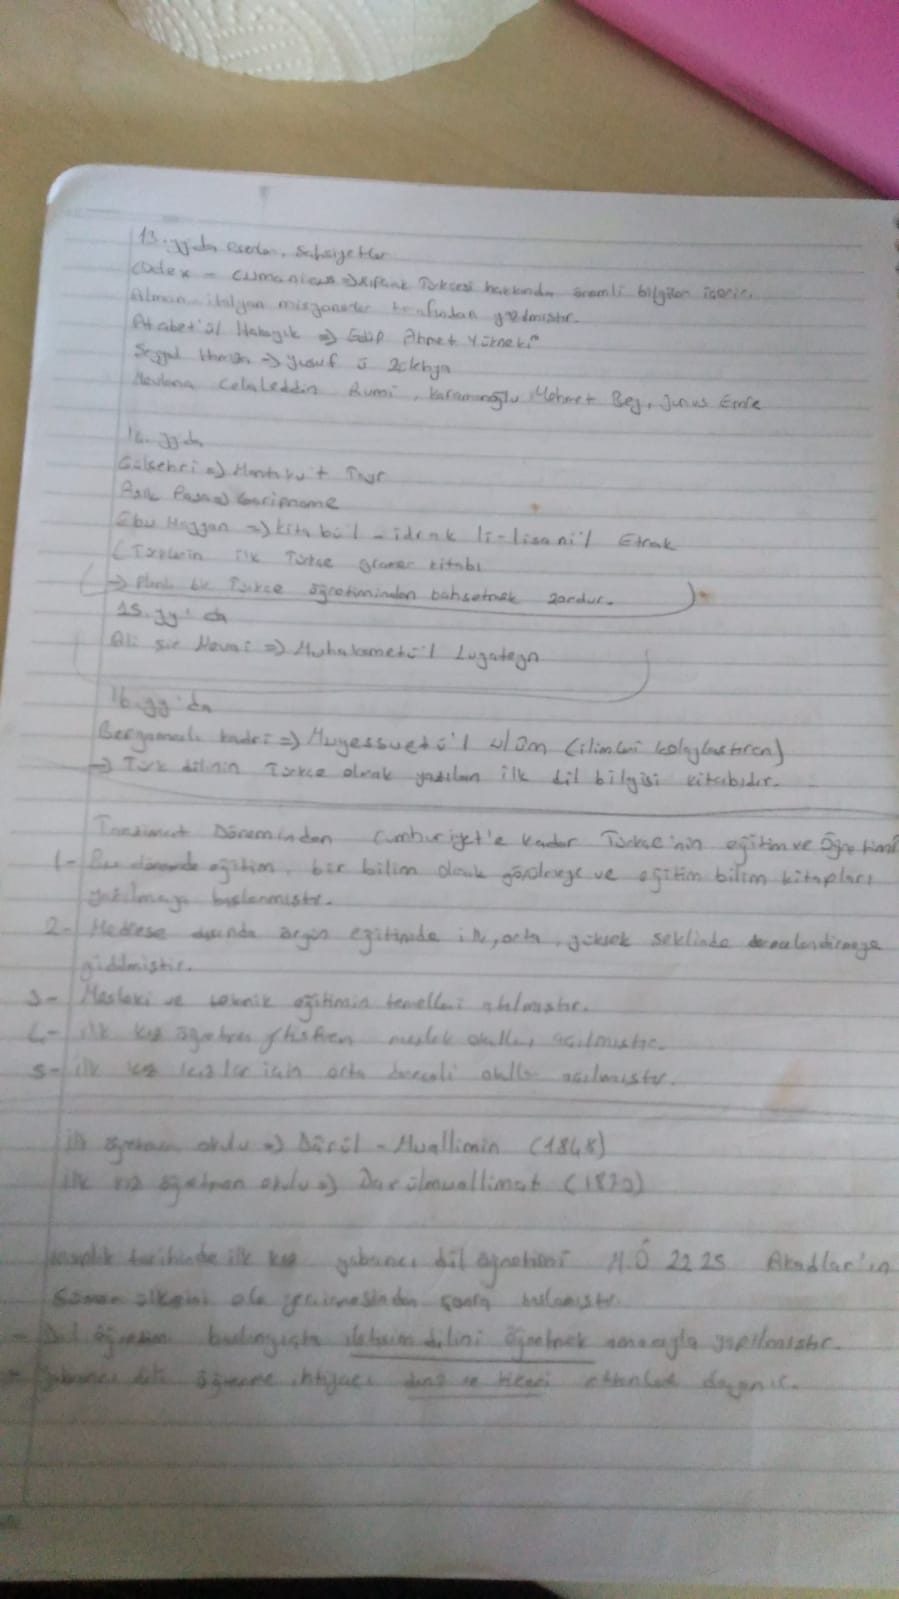 13. yy'da eserler, Şahsiyetler
Codex - Cumanicus => Kıpçak Türkçesi hakkında önemli bilgiler içerir.
Alman-italyan misyonerler tarafından yazılmıştır.
Atabetü'l Hakayık => Edip Ahmet Yükneki
=> Yusuf
Mevlana Celaleddin Rumi, Karamanoğlu Mehmet Bey, Yunus Emre
14. yy'da
Gülşehri => Mantıku't Tayr
Aşık Paşa => Garipname
Ebu Hayyan => kitabü'l -idrak li-lisani'l Etrak
(Türklerin ilk Türkçe gramer kitabı
-> planlı bir Türkçe öğretiminden bahsetmek zordur.
15. yy'da
Ali Şir Nevai => Muhakemetü'l Lugateyn
16. yy'da
Bergamalı Kadri => Müyessiretü'l ulûm (ilimleri kolaylaştıran)
-> Türk dilinin Türkçe olarak yazılan ilk dil bilgisi kitabıdır.
Tanzimat Döneminden Cumhuriyet'e kadar Türkçe'nin eğitim ve Öğretimi
1- Bu dönemde eğitim, bir bilim olarak görülmeye ve eğitim bilim kitapları
yazılmaya başlanmıştır.
2- Medrese dışında örgün eğitimde ilk, orta, yüksek şeklinde derecelendirmeye
gidilmiştir.
3- Mesleki ve teknik eğitimin temelleri atılmıştır.
4- ilk kez öğretmen yetiştiren meslek okulları açılmıştır.
5- ilk kez kızlar için orta dereceli okullar açılmıştır.
ilk öğretmen okulu => Dârül - Muallimin (1848)
ilk kız öğretmen okulu => Darülmuallimat (1870)
insanlık tarihinde ilk kez yabancı dil öğretimi M.Ö 2225 Akadlar'ın
Sümer ülkesini ele geçirmesinden sonra başlamıştır.
- Dil öğretimi başlangıçta iletişim dilini öğretmek amacıyla yapılmıştır.
- Yabancı dili öğrenme ihtiyacı dini ve ticari etkenlere dayanır.